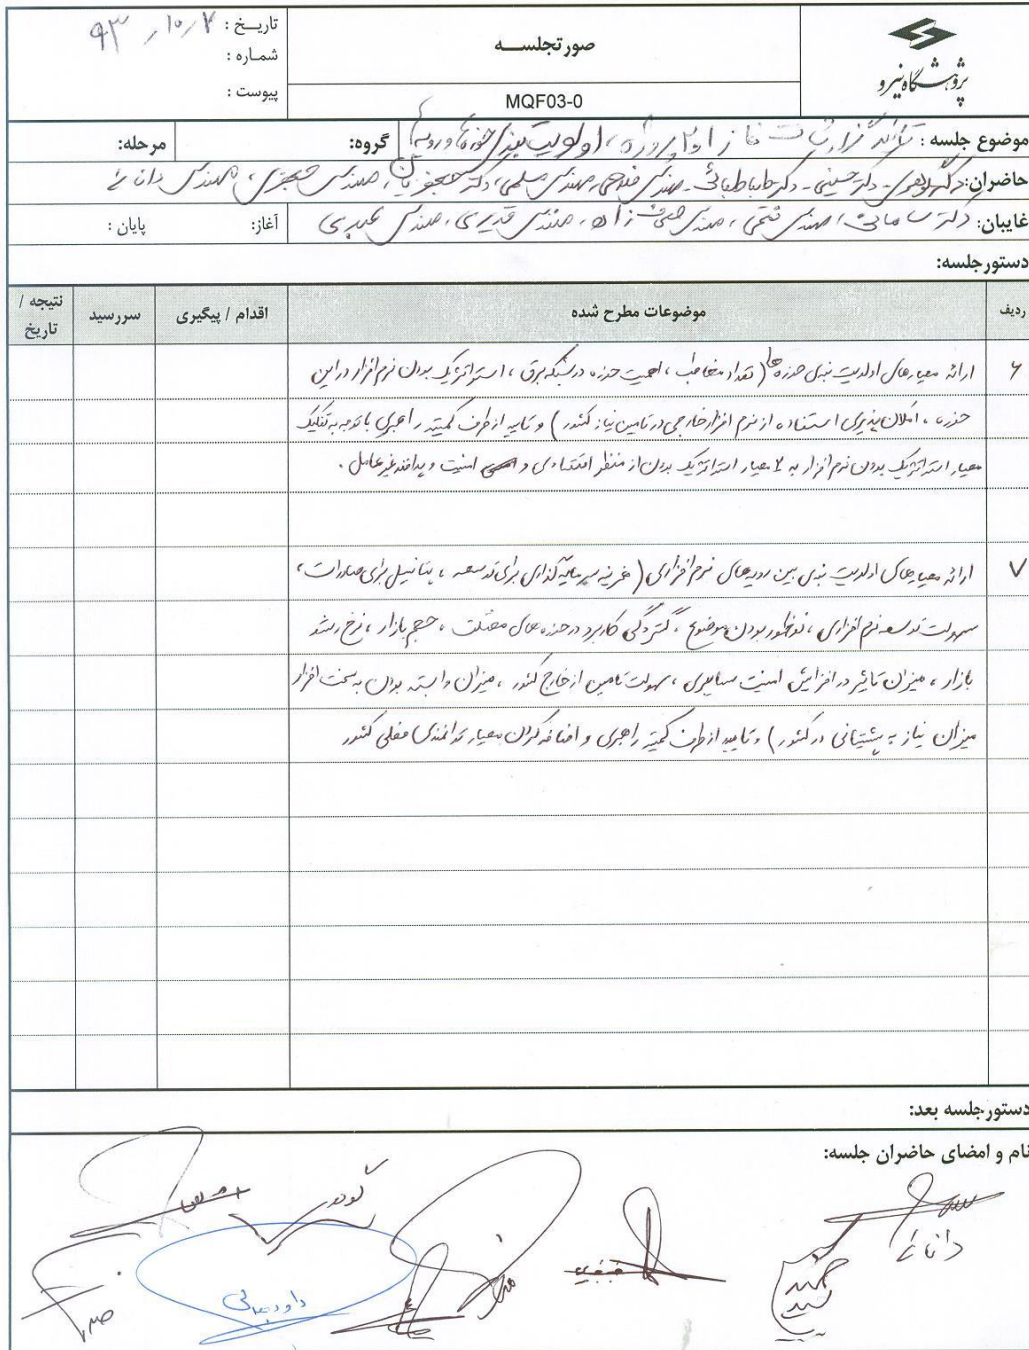 پژوهشگاه نیرو
صورتجلســه
MQF03-0
تاریـخ : ۹۳/۱۰/۲
شمـاره :
پیوست :
موضوع جلسه : تأیید گزارشات فاز ۱و۲ پروژه ، اولویت بندی حوزه‌ها و رویه‌ها
گروه:
مرحله:
حاضران: دکتر حسینی - دکتر طباطبائی - مهندس فلاحی، مهندس سلمی، دکتر ، مهندس ، مهندس دانائی
غایبان: دکتر سامانی ، مهندس فتحی ، مهندس زاده ، مهندس قدیری ، مهندس
آغاز:
پایان :
دستورجلسه:
ردیف
موضوعات مطرح شده
اقدام / پیگیری
سررسید
نتیجه / تاریخ
۶ ارائه معیارهای اولویت بندی حوزه ها ( تعداد مخاطب ، اهمیت حوزه در شبکه برق ، استراتژیک بودن نرم افزار در این
حوزه ، امکان پذیری استفاده از نرم افزار خارجی در تامین نیاز کشور ) و تایید از طرف کمیته راهبری با توجه به تفکیک
معیار استراتژیک بودن نرم افزار به ۲ معیار استراتژیک بودن از منظر اقتصادی و امنیت و پدافند غیر عامل .
۷ ارائه معیارهای اولویت بندی بین رویه‌های نرم افزاری ( هزینه سرمایه گذاری برای توسعه ، پتانسیل برای صادرات ،
سهولت توسعه نرم افزاری ، نوظهور بودن موضوع ، گستردگی کاربرد در حوزه های مختلف ، حجم بازار ، نرخ رشد
بازار ، میزان تاثیر در افزایش امنیت سایبری ، سهولت تامین از خارج کشور ، میزان وابسته بودن به سخت افزار
میزان نیاز به پشتیبانی در کشور ) و تایید از طرف کمیته راهبری و اضافه کردن معیار توانمندی فعلی کشور
دستورجلسه بعد:
نام و امضای حاضران جلسه:
دانائی